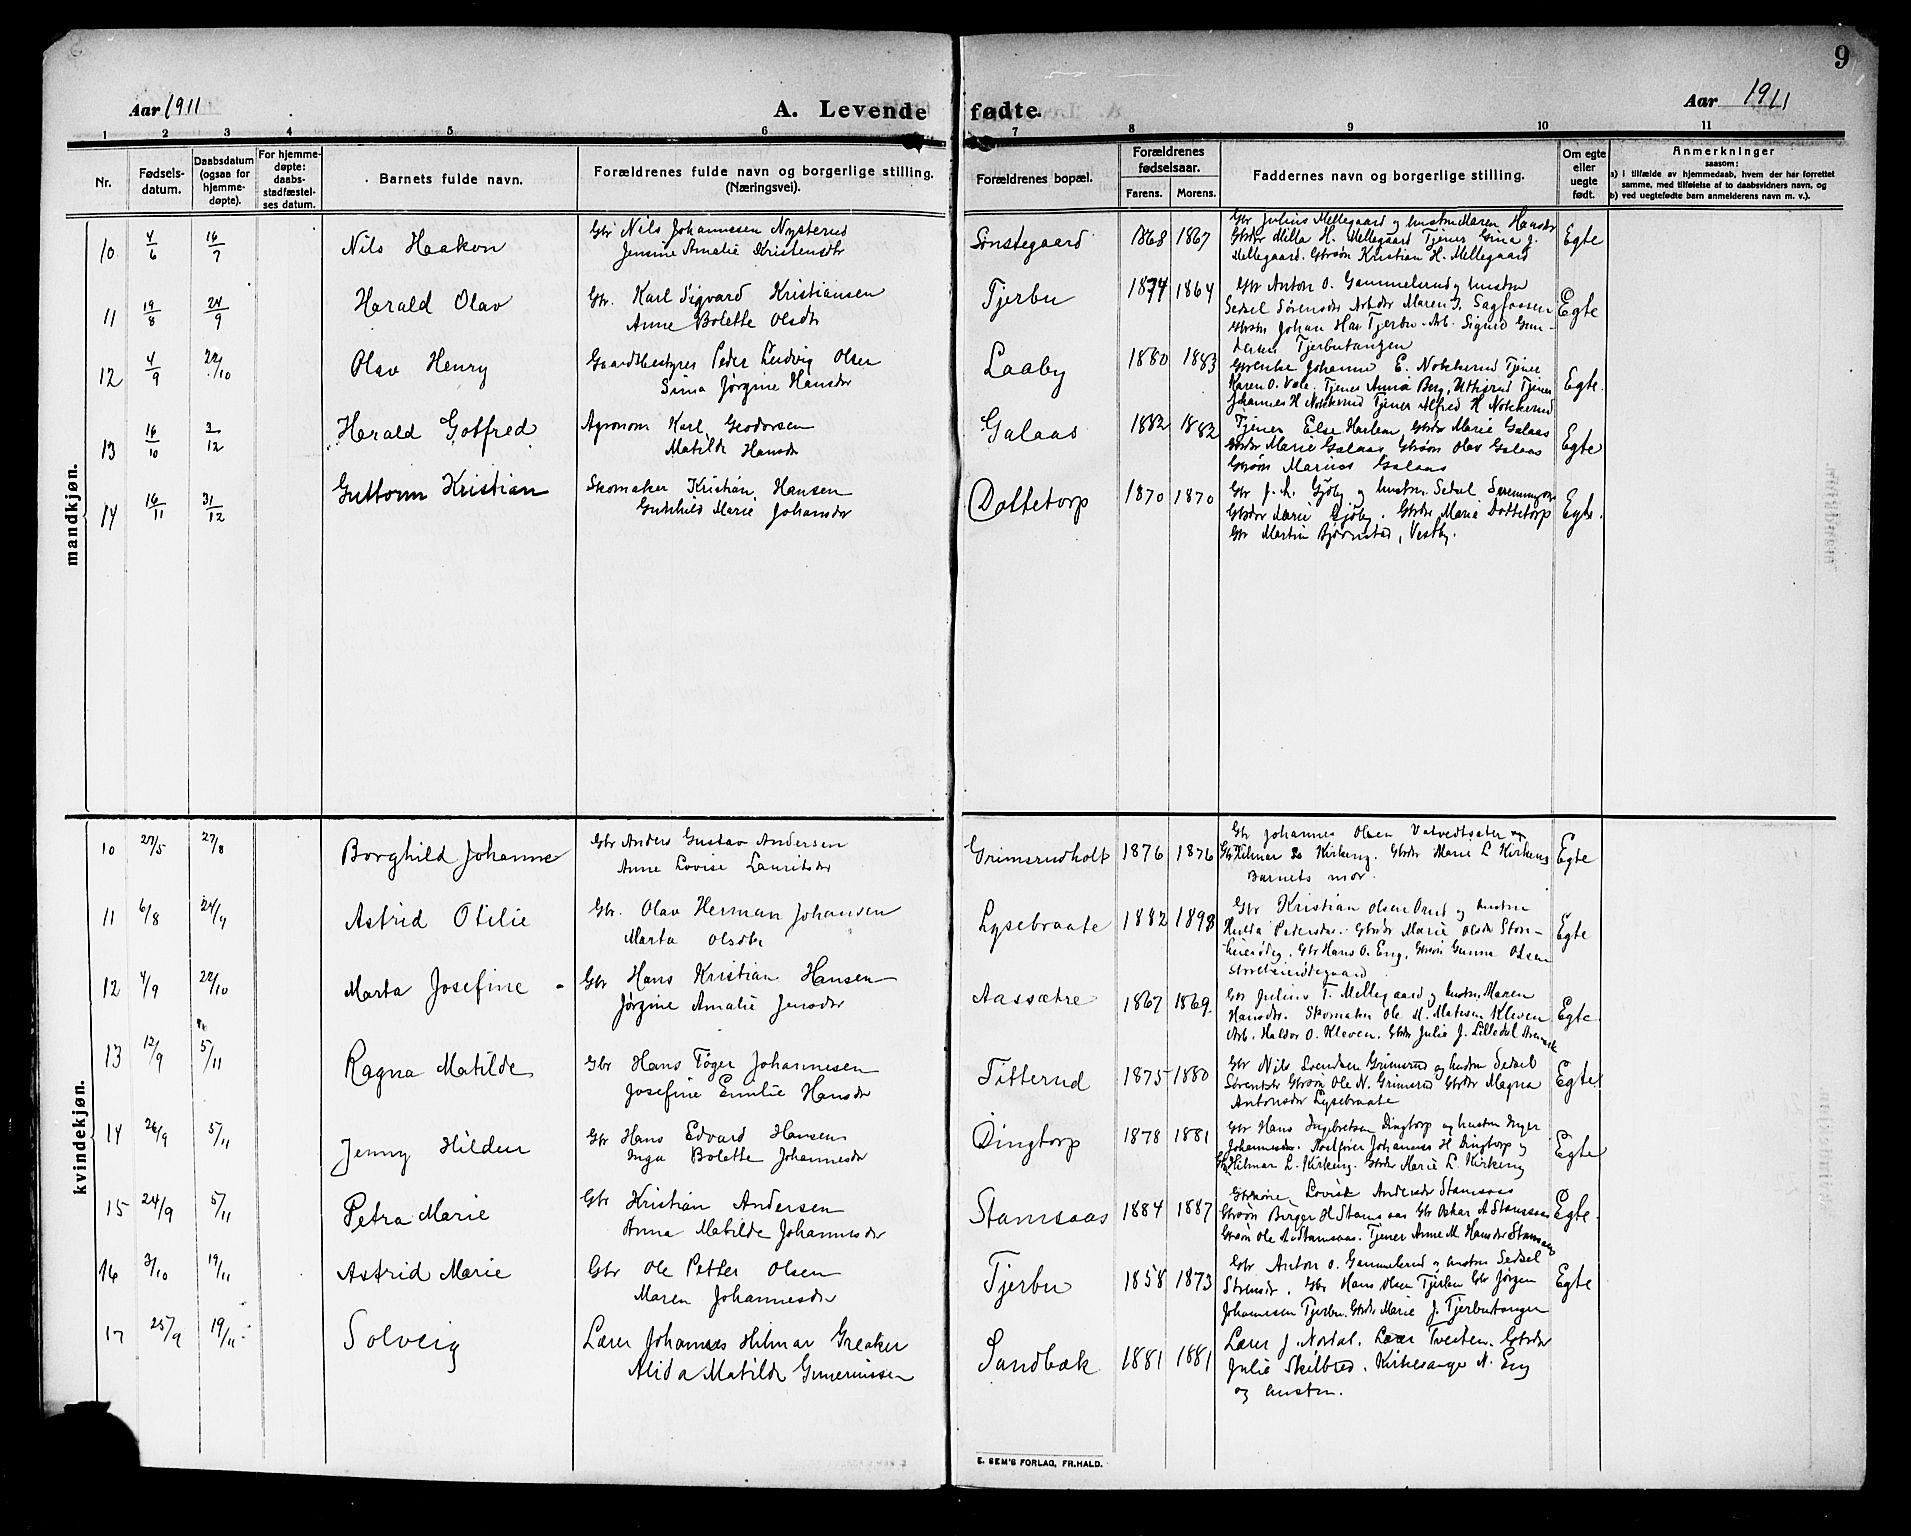 9
Aar 1911
A. Levende fødte.
Aar 1911
1 2 3 4 5 6 7 8 9 10 11
Nr.
Fødsels-
datum.
Daabsdatum
(ogsaa for
hjemme-
døpte).
For hjemme-
døpte:
daabs-
stadfæstel-
ses datum.
Barnets fulde navn.
Forældrenes fulde navn og borgerlige stilling.
(Næringsvei).
Forældrenes bopæl.
Forældrenes
fødselsaar.
Farens. Morens.
Faddernes navn og borgerlige stilling.
Om egte
eller
uegte
født.
Anmerkninger
saasom:
a) i tilfælde av hjemmedaab, hvem der har forrettet
samme, med tilføielse av to daabsvidners navn, og
b) ved uegtefødte barn anmelderens navn m. v.).
mandkjøn.
10 4/6 16/7 Nils Haakon
Gbr Nils Johannesen Nysterud
Jensine Amalie Kristensdtr
Sønstegaard 1868 1867
Gbr Julius Mellegaard og hustru Maren Hansdr
Gbrdr Milla H. Mellegaard Tjener Gina J.
Mellegaard. Gbrsøn Kristian H. Mellegaard
Egte
11 19/8 24/9 Harald Olav
Gbr. Karl Sigvard Kristiansen
Anne Bolette Olsdtr
Tjerbu 1874 1864
Gbr Anton O. Gammelsrud og hustru
Sedsel Sørensdr Arbdr Maren G. Sagfossen
Gbrsøn Johan Har Tjerbu. Arb. Sigurd Gun-
dersen Tjerbutangen
Egte
12 4/9 22/10 Olav Henry
Gaardsbestyrer Peder Ludvig Olsen
Sina Jørgine Hansdr
Laaby 1880 1883
Johanne E. Nokkerud Tjener
Karen O. Vale. Tjener Anna Berg, Tjener
Johannes H Nokkerud Tjener Alfred H Nokkerud
Egte.
13 16/10 3/12 Harald Gotfred
Agronom Karl Teodorsen
Matilde Hansdr
Galaas 1882 1882
Tjener Else Harlem Gbrdr Marie Galaas
Gbrdr Marie Galaas Gbrsøn Olav Galaas
Gbrsøn Marius Galaas
Egte
14 16/11 31/12 Guttorm Kristian
Skomaker Kristian Hansen
Gunhild Marie Johansdr
Dottetorp 1870 1870
Gbr J. L. Gjøby og hustru Sedsel
Gbrdr Marie Gjøby. Gbrdr Maria Dottetorp
Gbr Martin Bjørnstad, Vestby.
Egte.
kvindekjøn.
10 27/5 27/8 Borghild Johanne
Gbr Anders Gustav Andersen
Anne Lovise Lauritsdr
Grimsrudholt 1876 1876
Gbr Johannes Olsen Vatvedtsæter og
Gbr Hilmar L Kirkeng. Gbrdr Marie L Kirkeng
Barnets mor.
Egte
11 6/8 24/9 Astrid Otilie
Gbr. Olav Herman Johansen
Marta Olsdtr
Lysebraate 1882 1898
Gbr Kristian Olsen og hustru
Hulda Petersdr. Gbrdr Marie Olsdr Stor-
Gbr Hans O. Eng. Gbrsøn Gunnar Olsen
Egte
12 4/9 22/10 Marta Josefine
Gbr Hans Kristian Hansen
Jørgine Amalie Jensdr
Aassætre 1867 1869.
Gbr Julius T. Mellegaard og hustru Maren
Hansdr. Skomaker Ole M. Matisen Kleven
Arb. Haldor O. Kleven. Gbrdr Julie J. Lilledal Aremark
Egte
13 12/9 5/11 Ragna Matilde
Gbr Hans Tøger Johannesen
Josefine Emilie Hansdr
Titterud 1875 1880
Gbr Nils Svendsen Grimsrud og hustru Sedsel
Sørensdr Gbrsøn Ole N. Grimsrud Gbrdr Magna
Antonsdr Lysebraate
Egte
14 26/9 5/11 Jenny Hildur
Gbr Hans Edvard Hansen
Inga Bolette Johannesdr
Dingtorp 1878 1881
Gbr Hans Ingebretsen Dingtorp og hustru Inger
Johannesdr. Postfører Johannes H Dingtorp og
Gbr Hilmar L. Kirkeng. Gbrdr Marie L. Kirkeng
Egte
15 24/9 5/11 Petra Marie
Gbr Kristian Andersen
Anna Matilde Johannesdr
Stamsaas 1884 1887
Lovise Andersdr Stamsaas
Gbrsøn Birger H Stamsaas Gbr Oskar A Stamsaas
Gbrsøn Ole A Stamsaas. Tjener Anne M Hansdr Stamsaas
Egte.
16 3/10 19/11 Astrid Marie
Gbr Ole Petter Olsen
Maren Johannesdr
Tjerbu 1858 1873
Gbr Anton O. Gammelsrud og hustru Sedsel
Sørensdr. Gbr Hans Olsen Tjerbu Gbr Jørgen
Johannesen Tjerbu. Gbrdr Marie J. Tjerbutangen
Egte
17 25/9 19/11 Solveig
Lærer Johannes Hilmar Greaker
Alida Matilde Gunerinssen
Sandbæk 1881 1881
Lærer J. Nordal. Lærer Tveiten. Gbrdr
Julie Skilbred. Kirkesanger N. Eng
og hustru.
E. SEM'S FORLAG, FR.HALD.